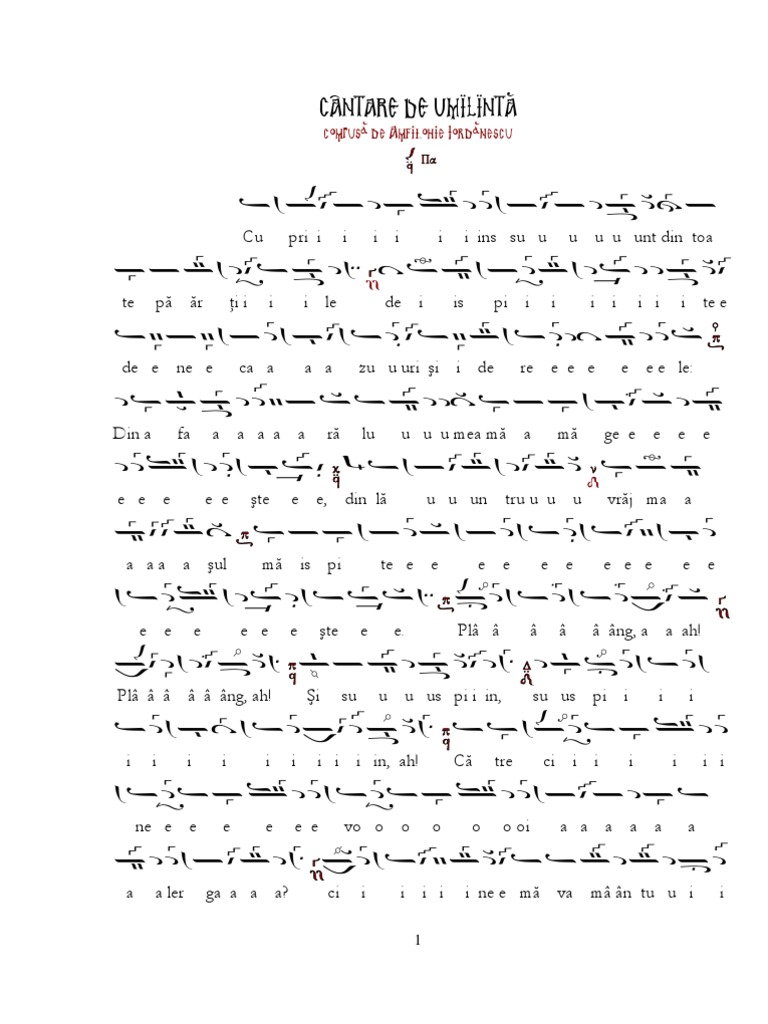 CÂNTARE DE UMILINȚĂ
COMPUSĂ DE AMFILOHIE IORDĂNESCU
Πα
Cu pri i i i i i i ins su u u u u unt din toa
te pă ăr ţi i i i le de i is pi i i i i i i i te e
de e ne e ca a a a zu u uri şi i de re e e e e e e le:
Din a fa a a a a a ră lu u u u mea mă a mă ge e e e e
e e e e e şte e e, din lă u u un tru u u u vrăj ma a
a a a a şul mă is pi te e e e e e e e e e e e
e e e e e e şte e e. Plâ â â â â âng, a a ah!
Plâ â â â â âng, ah! Şi su u u us pi i in, su us pi i i i
i i i i i i i i i in, ah! Că tre ci i i i i i i i
ne e e e e e e vo o o o o o oi a a a a a a
a a ler ga a a a? ci i i i i i ne e mă va mâ ân tu u i i
1